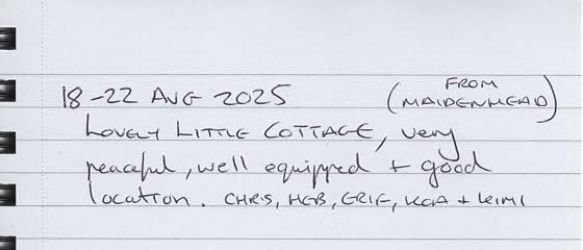 18-22 AUG 2025 (FROM MAIDENHEAD)
LOVELY LITTLE COTTAGE, very
peaceful, well equipped + good
location. CHRS, HGB, + KIMI